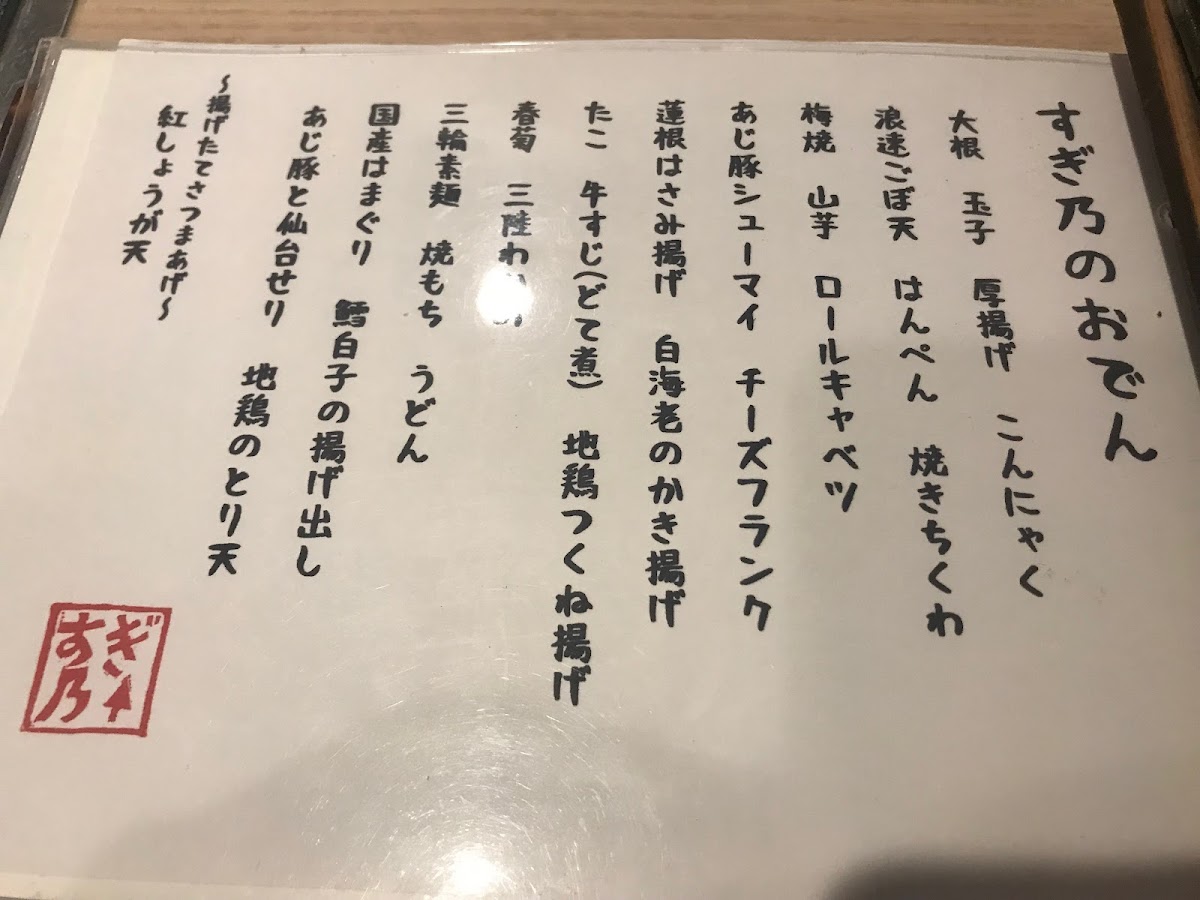 すぎ乃のおでん
大根 玉子 厚揚げ こんにゃく
浪速ごぼ天 はんぺん 焼きちくわ
梅焼 山芋 ロールキャベツ
あじ豚シューマイ チーズフランク
蓮根はさみ揚げ 白海老のかき揚げ
たこ 牛すじ(どて煮) 地鶏つくね揚げ
春菊 三陸わ
三輪素麺 焼もち うどん
国産はまぐり 鱈白子の揚げ出し
あじ豚と仙台せり 地鶏のとり天
～揚げたてさつまあげ～
紅しょうが天
すぎ乃